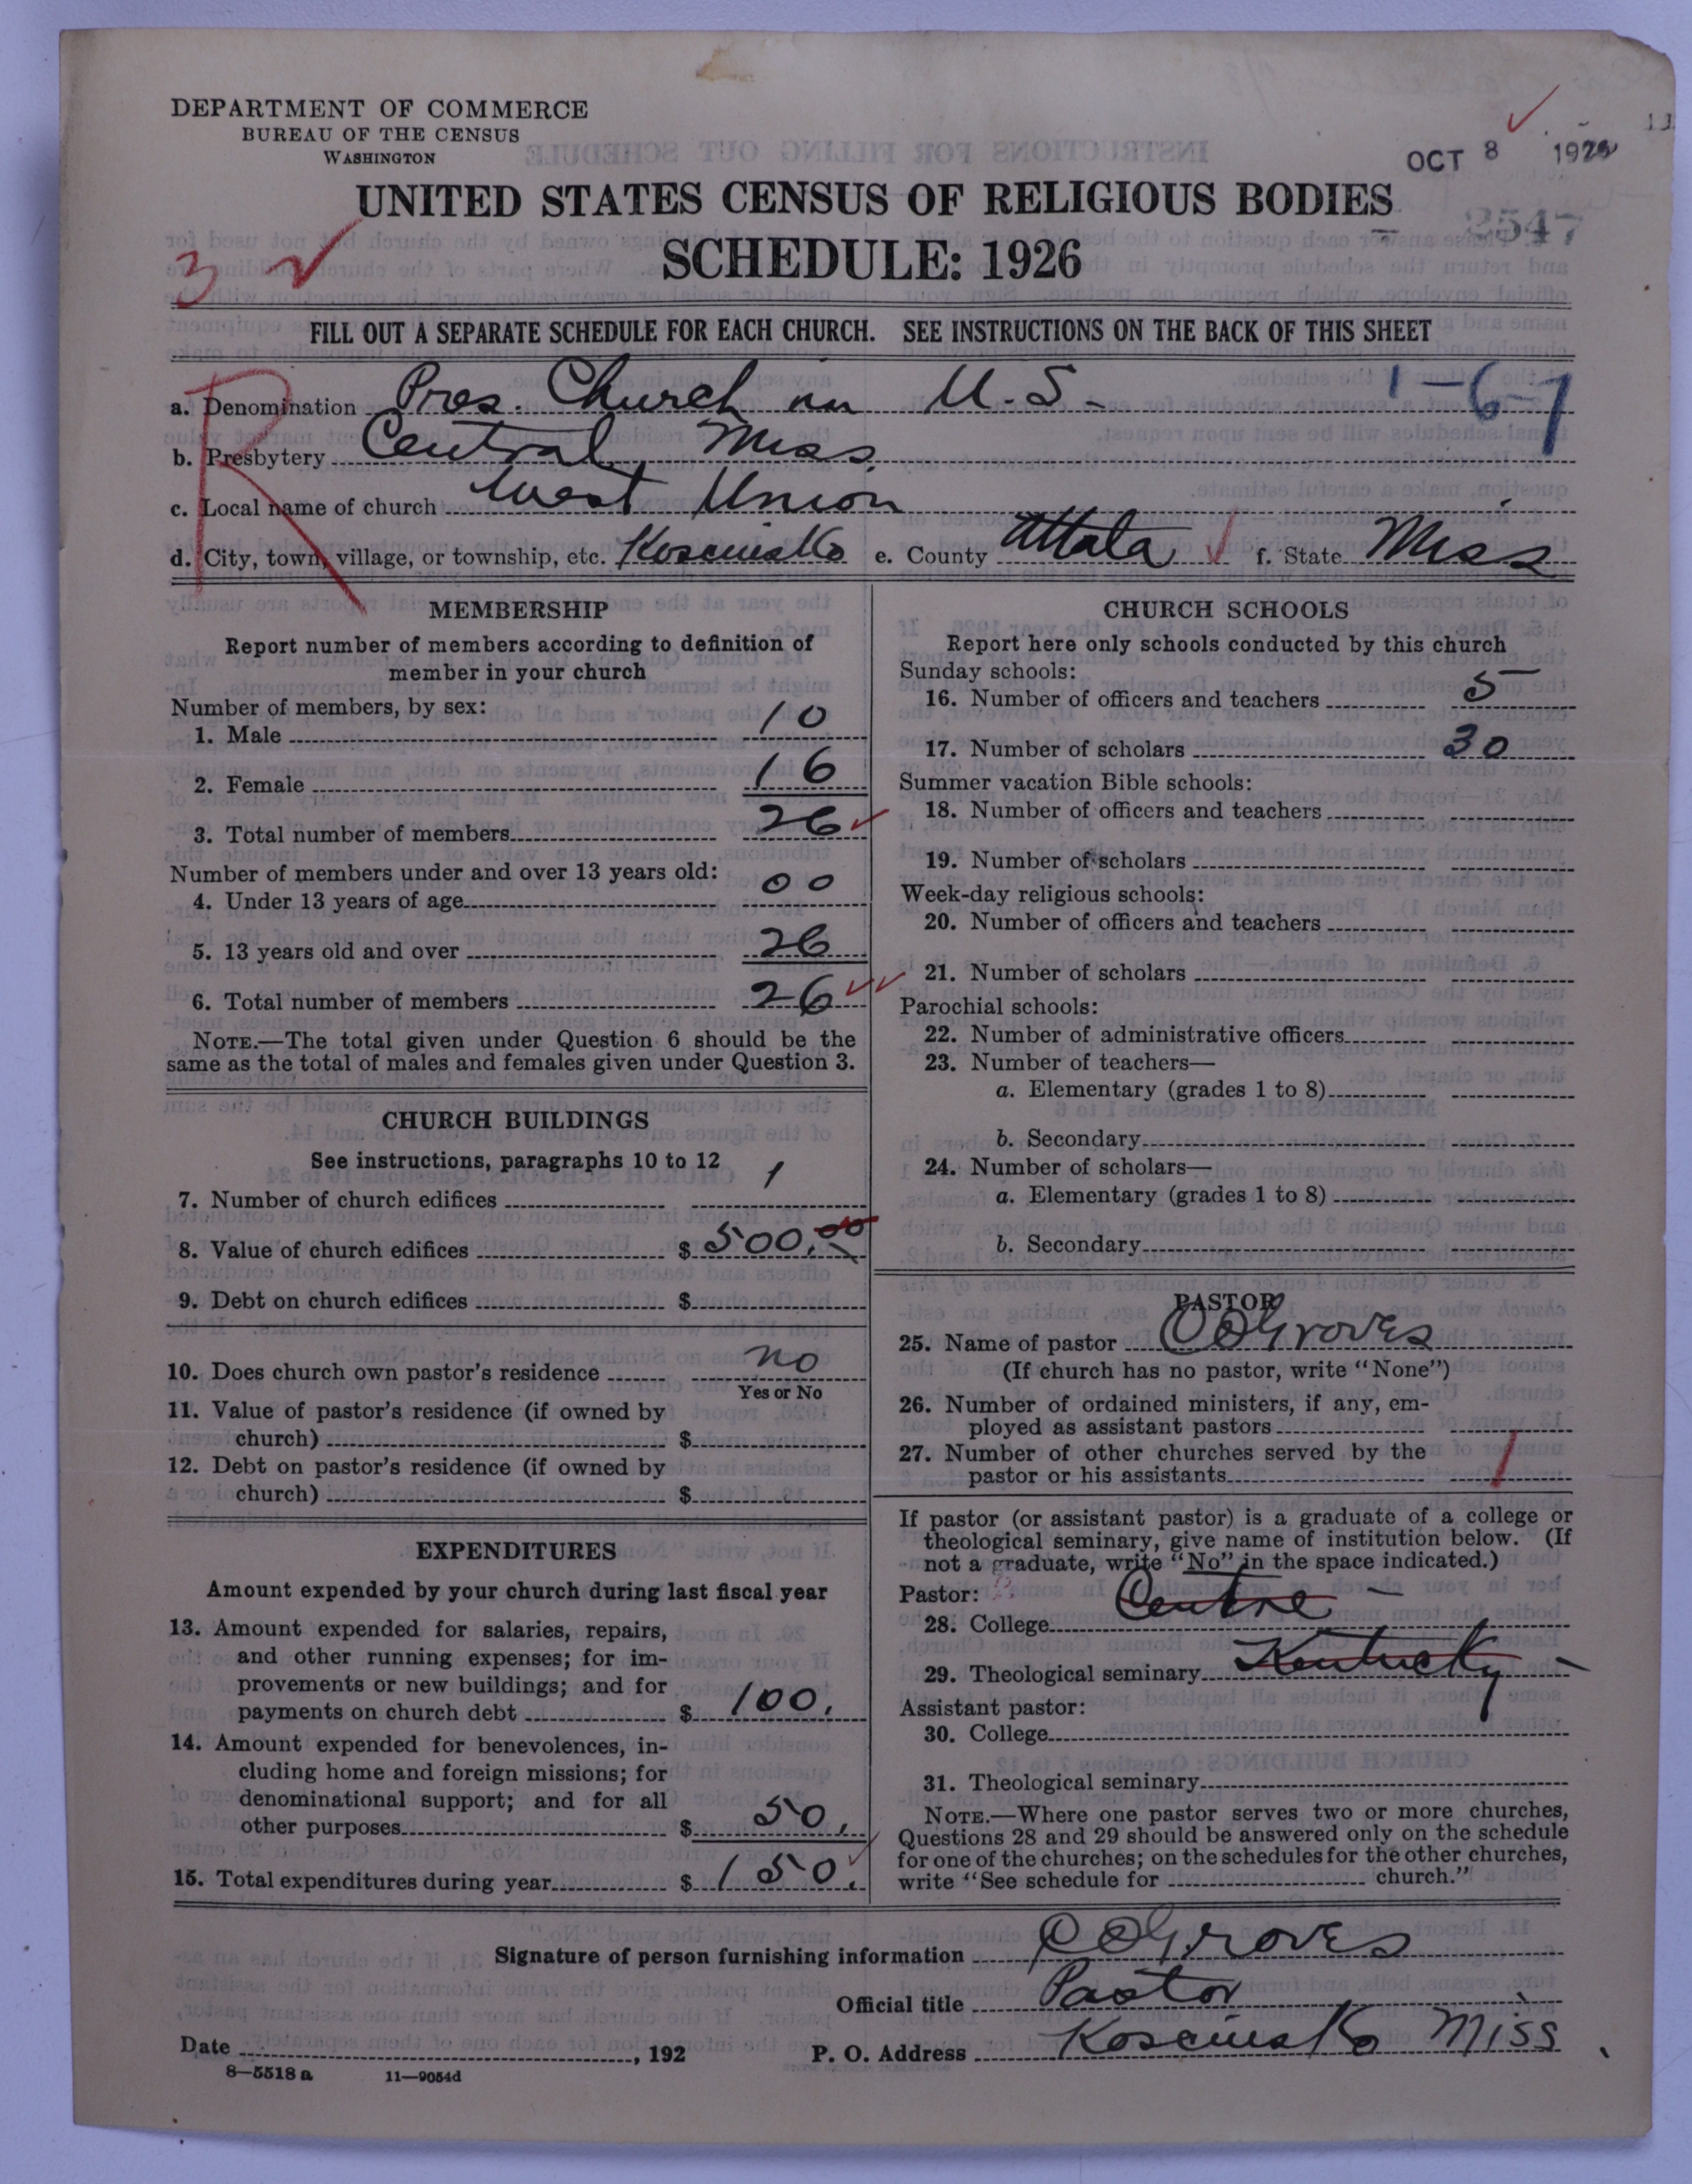 DEPARTMENT OF COMMERCE
BUREAU OF THE CENSUS
WASHINGTON
OCT 8 1926
UNITED STATES CENSUS OF RELIGIOUS BODIES
2547
SCHEDULE: 1926
3
FILL OUT A SEPARATE SCHEDULE FOR EACH CHURCH. SEE INSTRUCTIONS ON THE BACK OF THIS SHEET
R
a. Denomination Pres. Church in U.S. 1-67
b. Presbytery Central Miss.
c. Local name of church West Union
d. City, town, village, or township, etc. Kosciusko e. County Attala f. State Miss
MEMBERSHIP
Report number of members according to definition of
member in your church
Number of members, by sex:
1. Male 10
2. Female 16
3. Total number of members 26
Number of members under and over 13 years old:
4. Under 13 years of age 00
5. 13 years old and over 26
6. Total number of members 26
NOTE.—The total given under Question 6 should be the
same as the total of males and females given under Question 3.
CHURCH BUILDINGS
See instructions, paragraphs 10 to 12
7. Number of church edifices 1
8. Value of church edifices $ 500.00
9. Debt on church edifices $
10. Does church own pastor's residence no
Yes or No
11. Value of pastor's residence (if owned by
church) $
12. Debt on pastor's residence (if owned by
church) $
EXPENDITURES
Amount expended by your church during last fiscal year
13. Amount expended for salaries, repairs,
and other running expenses; for im-
provements or new buildings; and for
payments on church debt $ 100.
14. Amount expended for benevolences, in-
cluding home and foreign missions; for
denominational support; and for all
other purposes $ 50.
15. Total expenditures during year $ 150.
CHURCH SCHOOLS
Report here only schools conducted by this church
Sunday schools:
16. Number of officers and teachers 5
17. Number of scholars 30
Summer vacation Bible schools:
18. Number of officers and teachers
19. Number of scholars
Week-day religious schools:
20. Number of officers and teachers
21. Number of scholars
Parochial schools:
22. Number of administrative officers
23. Number of teachers—
a. Elementary (grades 1 to 8)
b. Secondary
24. Number of scholars—
a. Elementary (grades 1 to 8)
b. Secondary
PASTOR
25. Name of pastor C O Groves
(If church has no pastor, write "None")
26. Number of ordained ministers, if any, em-
ployed as assistant pastors
27. Number of other churches served by the
pastor or his assistants 1
If pastor (or assistant pastor) is a graduate of a college or
theological seminary, give name of institution below. (If
not a graduate, write "No" in the space indicated.)
Pastor:
28. College Centre
29. Theological seminary Kentucky
Assistant pastor:
30. College
31. Theological seminary
NOTE.—Where one pastor serves two or more churches,
Questions 28 and 29 should be answered only on the schedule
for one of the churches; on the schedules for the other churches,
write "See schedule for church."
Signature of person furnishing information C O Groves
Official title Pastor
Date , 192 P. O. Address Kosciusko Miss.
8—5518 a 11—9054d